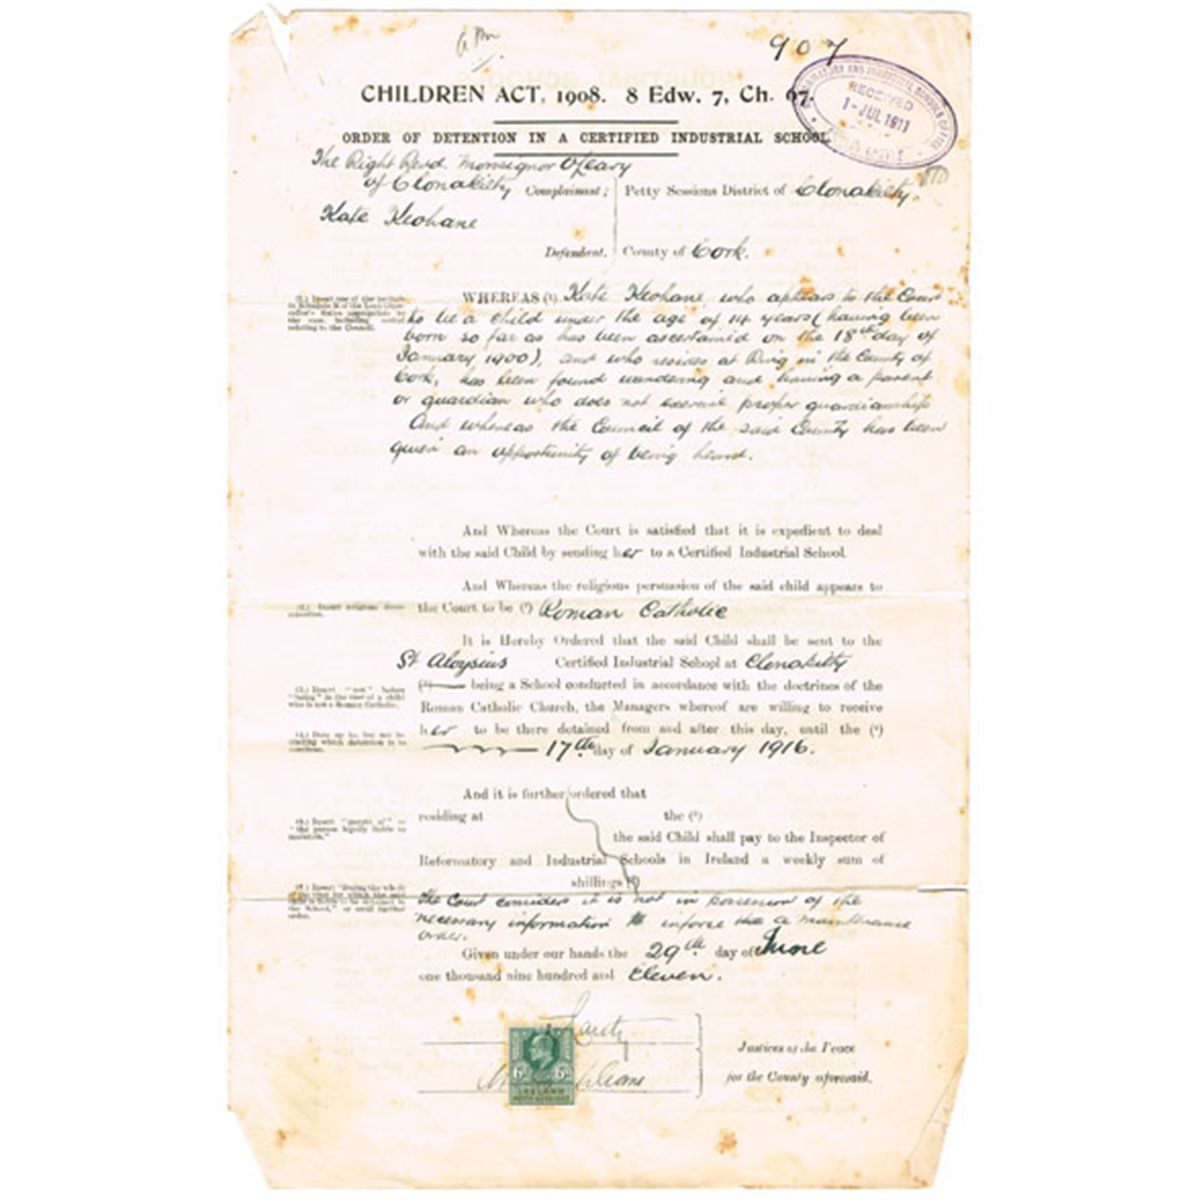 907
CHILDREN ACT, 1908. 8 Edw. 7, Ch. 67.
RECEIVED
1-JUL 1911
ORDER OF DETENTION IN A CERTIFIED INDUSTRIAL SCHOOL.
The Right Revd. Monsignor O'Leary
of Clonakilty Complainant;
Petty Sessions District of Clonakilty.
Kate Keohane
Defendant.
County of Cork.
WHEREAS (1) Kate Keohane, who appears to the Court
to be a child under the age of 14 years (having been
born so far as has been ascertained on the 18th day of
January 1900), and who resides at Ring in the County of
Cork, has been found wandering and having a parent
or guardian who does not exercise proper guardianship
And whereas the Council of the said County has been
given an opportunity of being heard.
And Whereas the Court is satisfied that it is expedient to deal
with the said Child by sending her to a Certified Industrial School.
And Whereas the religious persuasion of the said child appears to
the Court to be (2) Roman Catholic
It is Hereby Ordered that the said Child shall be sent to the
St Aloysius Certified Industrial School at Clonakilty
(3) being a School conducted in accordance with the doctrines of the
Roman Catholic Church, the Managers whereof are willing to receive
her to be there detained from and after this day, until the (4)
17th day of January 1916.
And it is further ordered that
residing at the (5)
the said Child shall pay to the Inspector of
Reformatory and Industrial Schools in Ireland a weekly sum of
shillings
The Court considers it is not in possession of the
necessary information to inforce the a maintenance
order.
Given under our hands the 29th day of June
one thousand nine hundred and Eleven.
Justices of the Peace
for the County aforesaid.
6D 6D
IRELAND
PETTY SESSIONS
(2.) Insert religious denomination.
(3.) Insert "not" before
"being" in the case of a child
who is not a Roman Catholic.